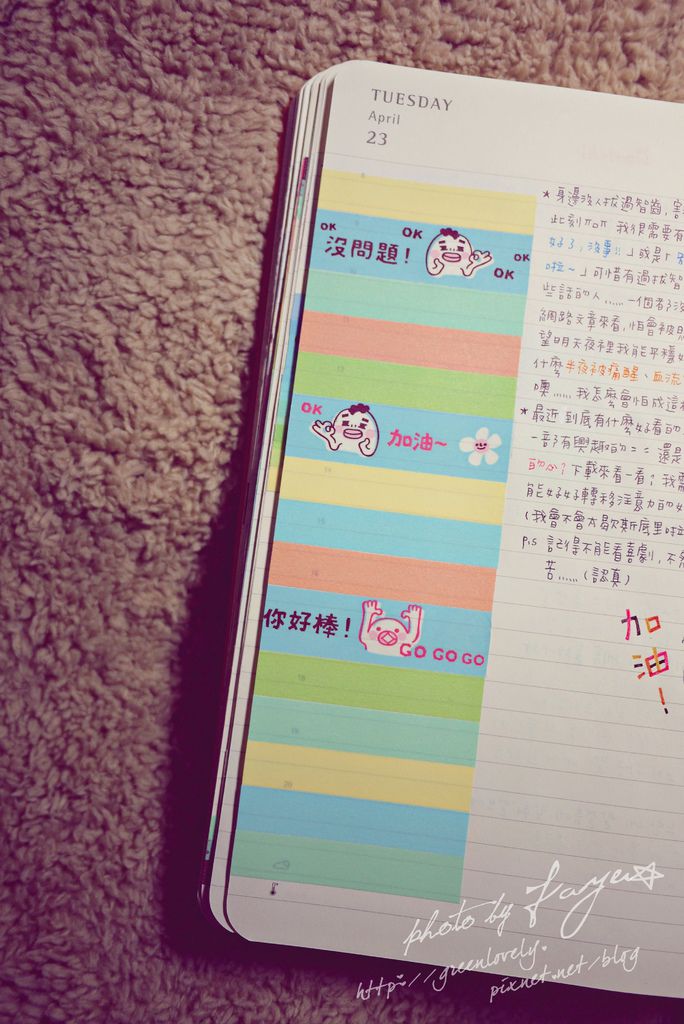 TUESDAY
April
23
OK 沒問題! OK OK OK
OK 加油~
你好棒! GO GO GO
★身邊沒人拔過智齒,害
此刻ㄇㄛㄇ 我很需要有
好了,沒事!!」或是「別
啦~」可惜有過拔智
些話的人......一個都沒
網路文章來看,怕會被
望明天夜裡我能平穩
什麼半夜被痛醒、血流
噢......我怎麼會怕成這
★最近 到底有什麼好看的
一部有興趣的== 還是
的心?下載來看一看?我需
能好好轉移注意力的
(我會不會太歇斯底里啦
P.S 記得不能看喜劇,不然
苦......(認真)
加
油
!
photo by Faye☆
http://greenlovely.
pixnet.net/blog